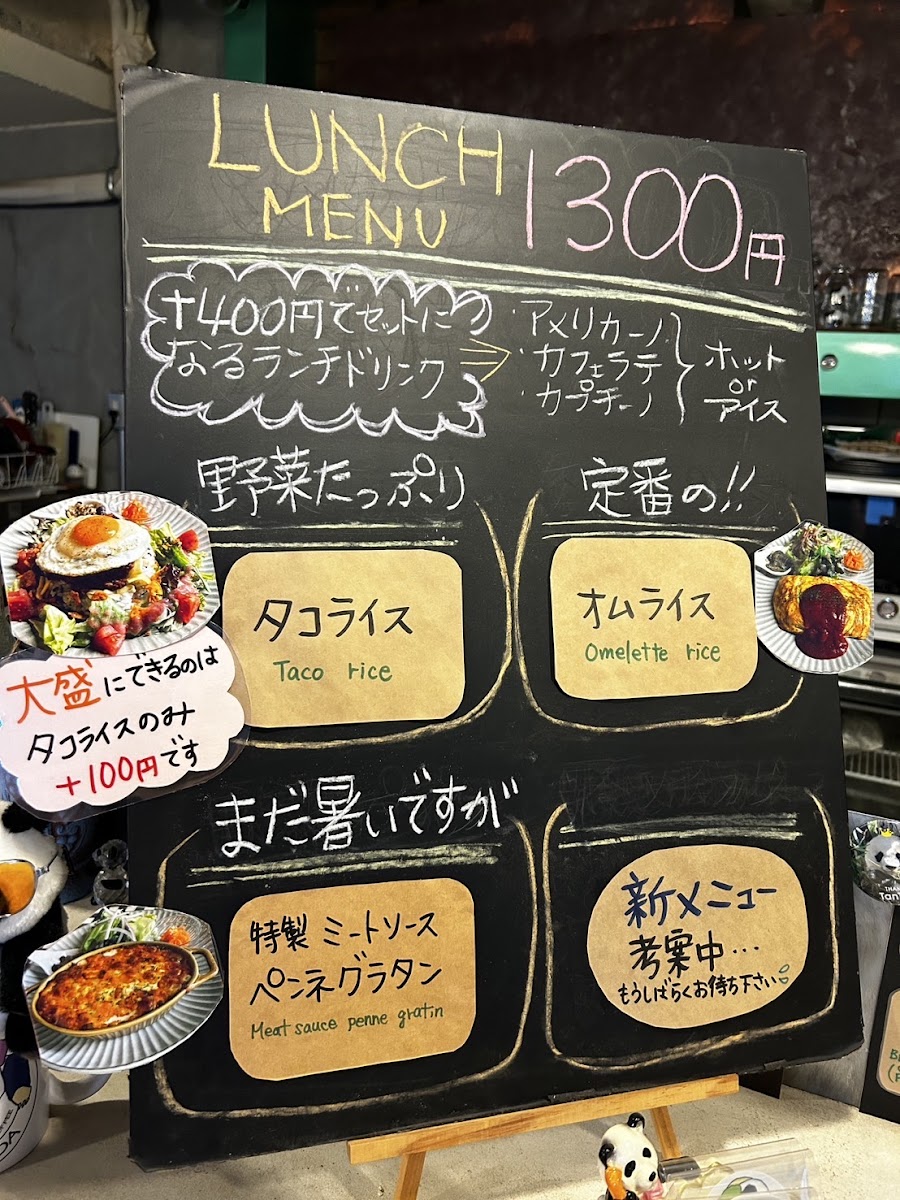 LUNCH
MENU
1300円
+400円でセットに
なるランチドリンク
・アメリカーノ
・カフェラテ
・カプチーノ
ホット
or
アイス
野菜たっぷり
タコライス
Taco rice
定番の!!
オムライス
Omelette rice
大盛にできるのは
タコライスのみ
+100円です
まだ暑いですが
特製 ミートソース
ペンネグラタン
Meat sauce penne gratin
新メニュー
考案中…
もうしばらくお待ち下さい